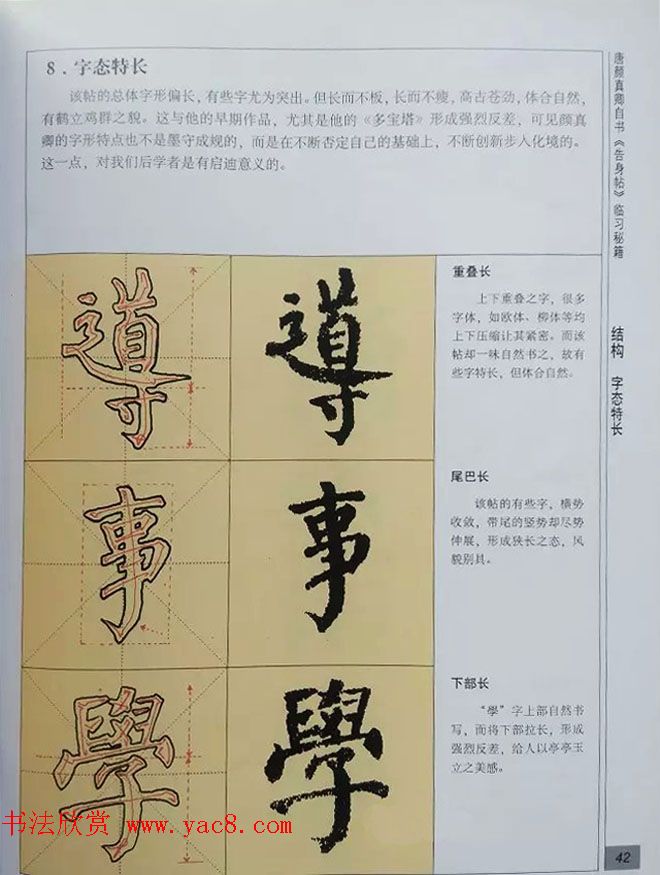 8．字态特长
该帖的总体字形偏长，有些字尤为突出。但长而不板，长而不瘦，高古苍劲，体合自然，
有鹤立鸡群之貌。这与他的早期作品，尤其是他的《多宝塔》形成强烈反差，可见颜真
卿的字形特点也不是墨守成规的，而是在不断否定自己的基础上，不断创新步入化境的。
这一点，对我们后学者是有启迪意义的。
導
導
重叠长
上下重叠之字，很多
字体，如欧体、柳体等均
上下压缩让其紧密。而该
帖却一味自然书之，故有
些字特长，但体合自然。
事
事
尾巴长
该帖的有些字，横势
收敛，带尾的竖势却尽势
伸展，形成狭长之态，风
貌别具。
學
學
下部长
“學”字上部自然书
写，而将下部拉长，形成
强烈反差，给人以亭亭玉
立之美感。
唐颜真卿自书《告身帖》临习秘籍
结构 字态特长
42
书法欣赏 www.yac8.com